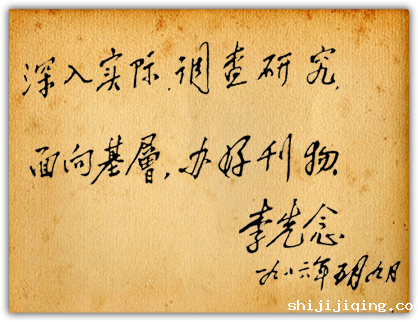 深入实际,调查研究,
面向基層,办好刊物.
李先念
一九八六年五月九日
shijijiqing.co